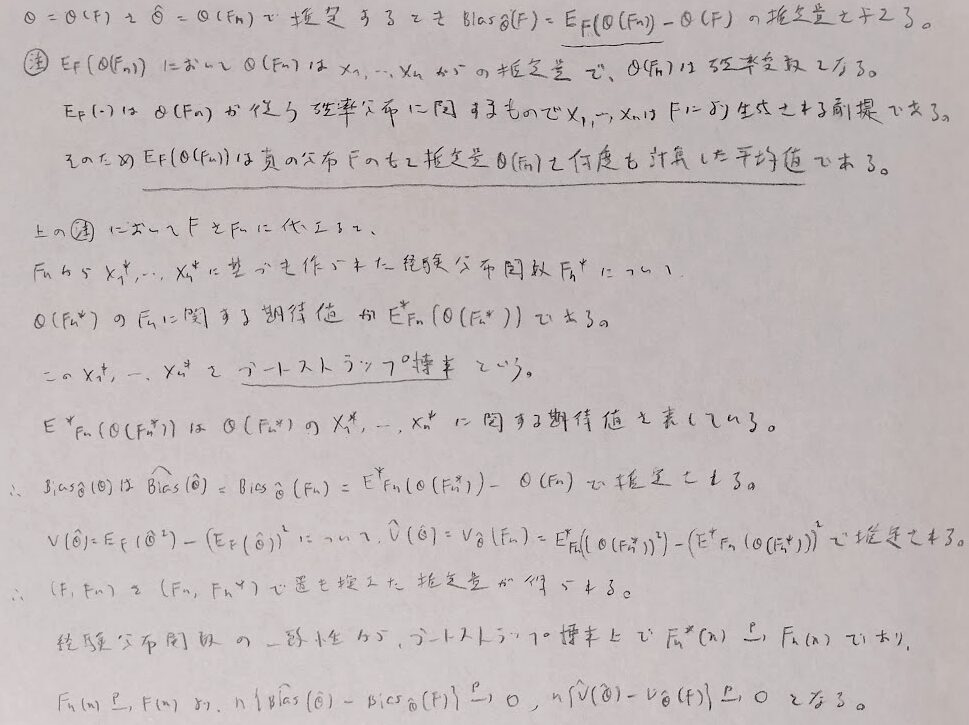 θ = θ(F) を θ̂ = θ(Fn) で推定するとき Biasθ̂(F) = E_F(θ(Fn)) - θ(F) の推定量を考える。
㊟ E_F(θ(Fn)) において θ(Fn) は X1, …, Xn からの推定量で、θ(Fn) は確率変数となる。
E_F(・) は θ(Fn) が従う確率分布に関するもので X1, …, Xn は F により生成される前提である。
そのため E_F(θ(Fn)) は真の分布 F のもと推定量 θ(Fn) を何度も計算した平均値である。
上の㊟において F を Fn に代えると、
Fn から X1*, …, Xn* に基づき作られた経験分布関数 Fn* について
θ(Fn*) の Fn に関する期待値が E*Fn(θ(Fn*)) である。
この X1*, …, Xn* を ブートストラップ標本 という。
E*Fn(θ(Fn*)) は θ(Fn*) の X1*, …, Xn* に関する期待値を表している。
∴ Biasθ̂(θ) は B̂ias(θ̂) = Biasθ̂(Fn) = E*Fn(θ(Fn*)) - θ(Fn) で推定される。
V(θ̂) = E_F(θ̂²) - (E_F(θ̂))² について、V̂(θ̂) = Vθ̂(Fn) = E*Fn((θ(Fn*))²) - (E*Fn(θ(Fn*)))² で推定される。
∴ (F, Fn) を (Fn, Fn*) で置き換えた推定量が得られる。
経験分布関数の一致性から、ブートストラップ標本上で Fn*(x) →P Fn(x) であり、
Fn(x) →P F(x) より、n{B̂ias(θ̂) - Biasθ̂(F)} →P 0, n{V̂(θ̂) - Vθ̂(F)} →P 0 となる。